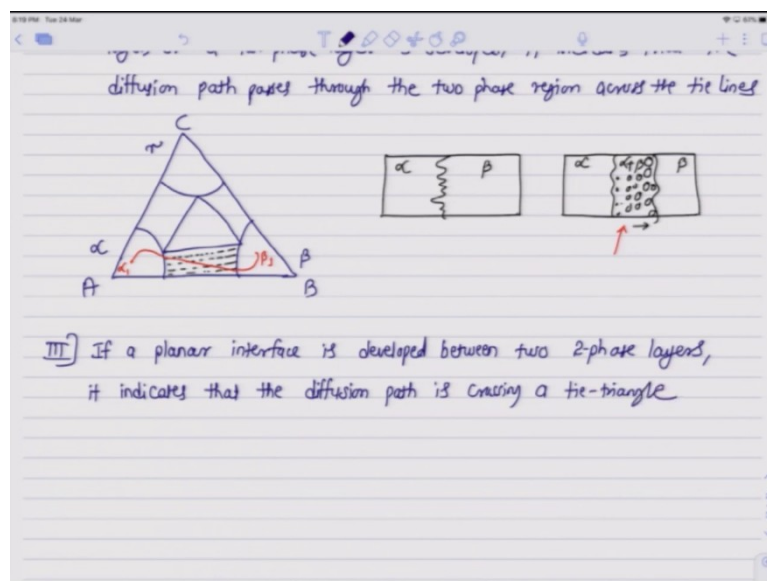 8:19 PM Tue 24 Mar
diffusion path passes through the two phase region across the tie lines
C
α
β
α+β
β
α
α₁
β₃
β
A
B
III] If a planar interface is developed between two 2-phase layers,
it indicates that the diffusion path is crossing a tie-triangle